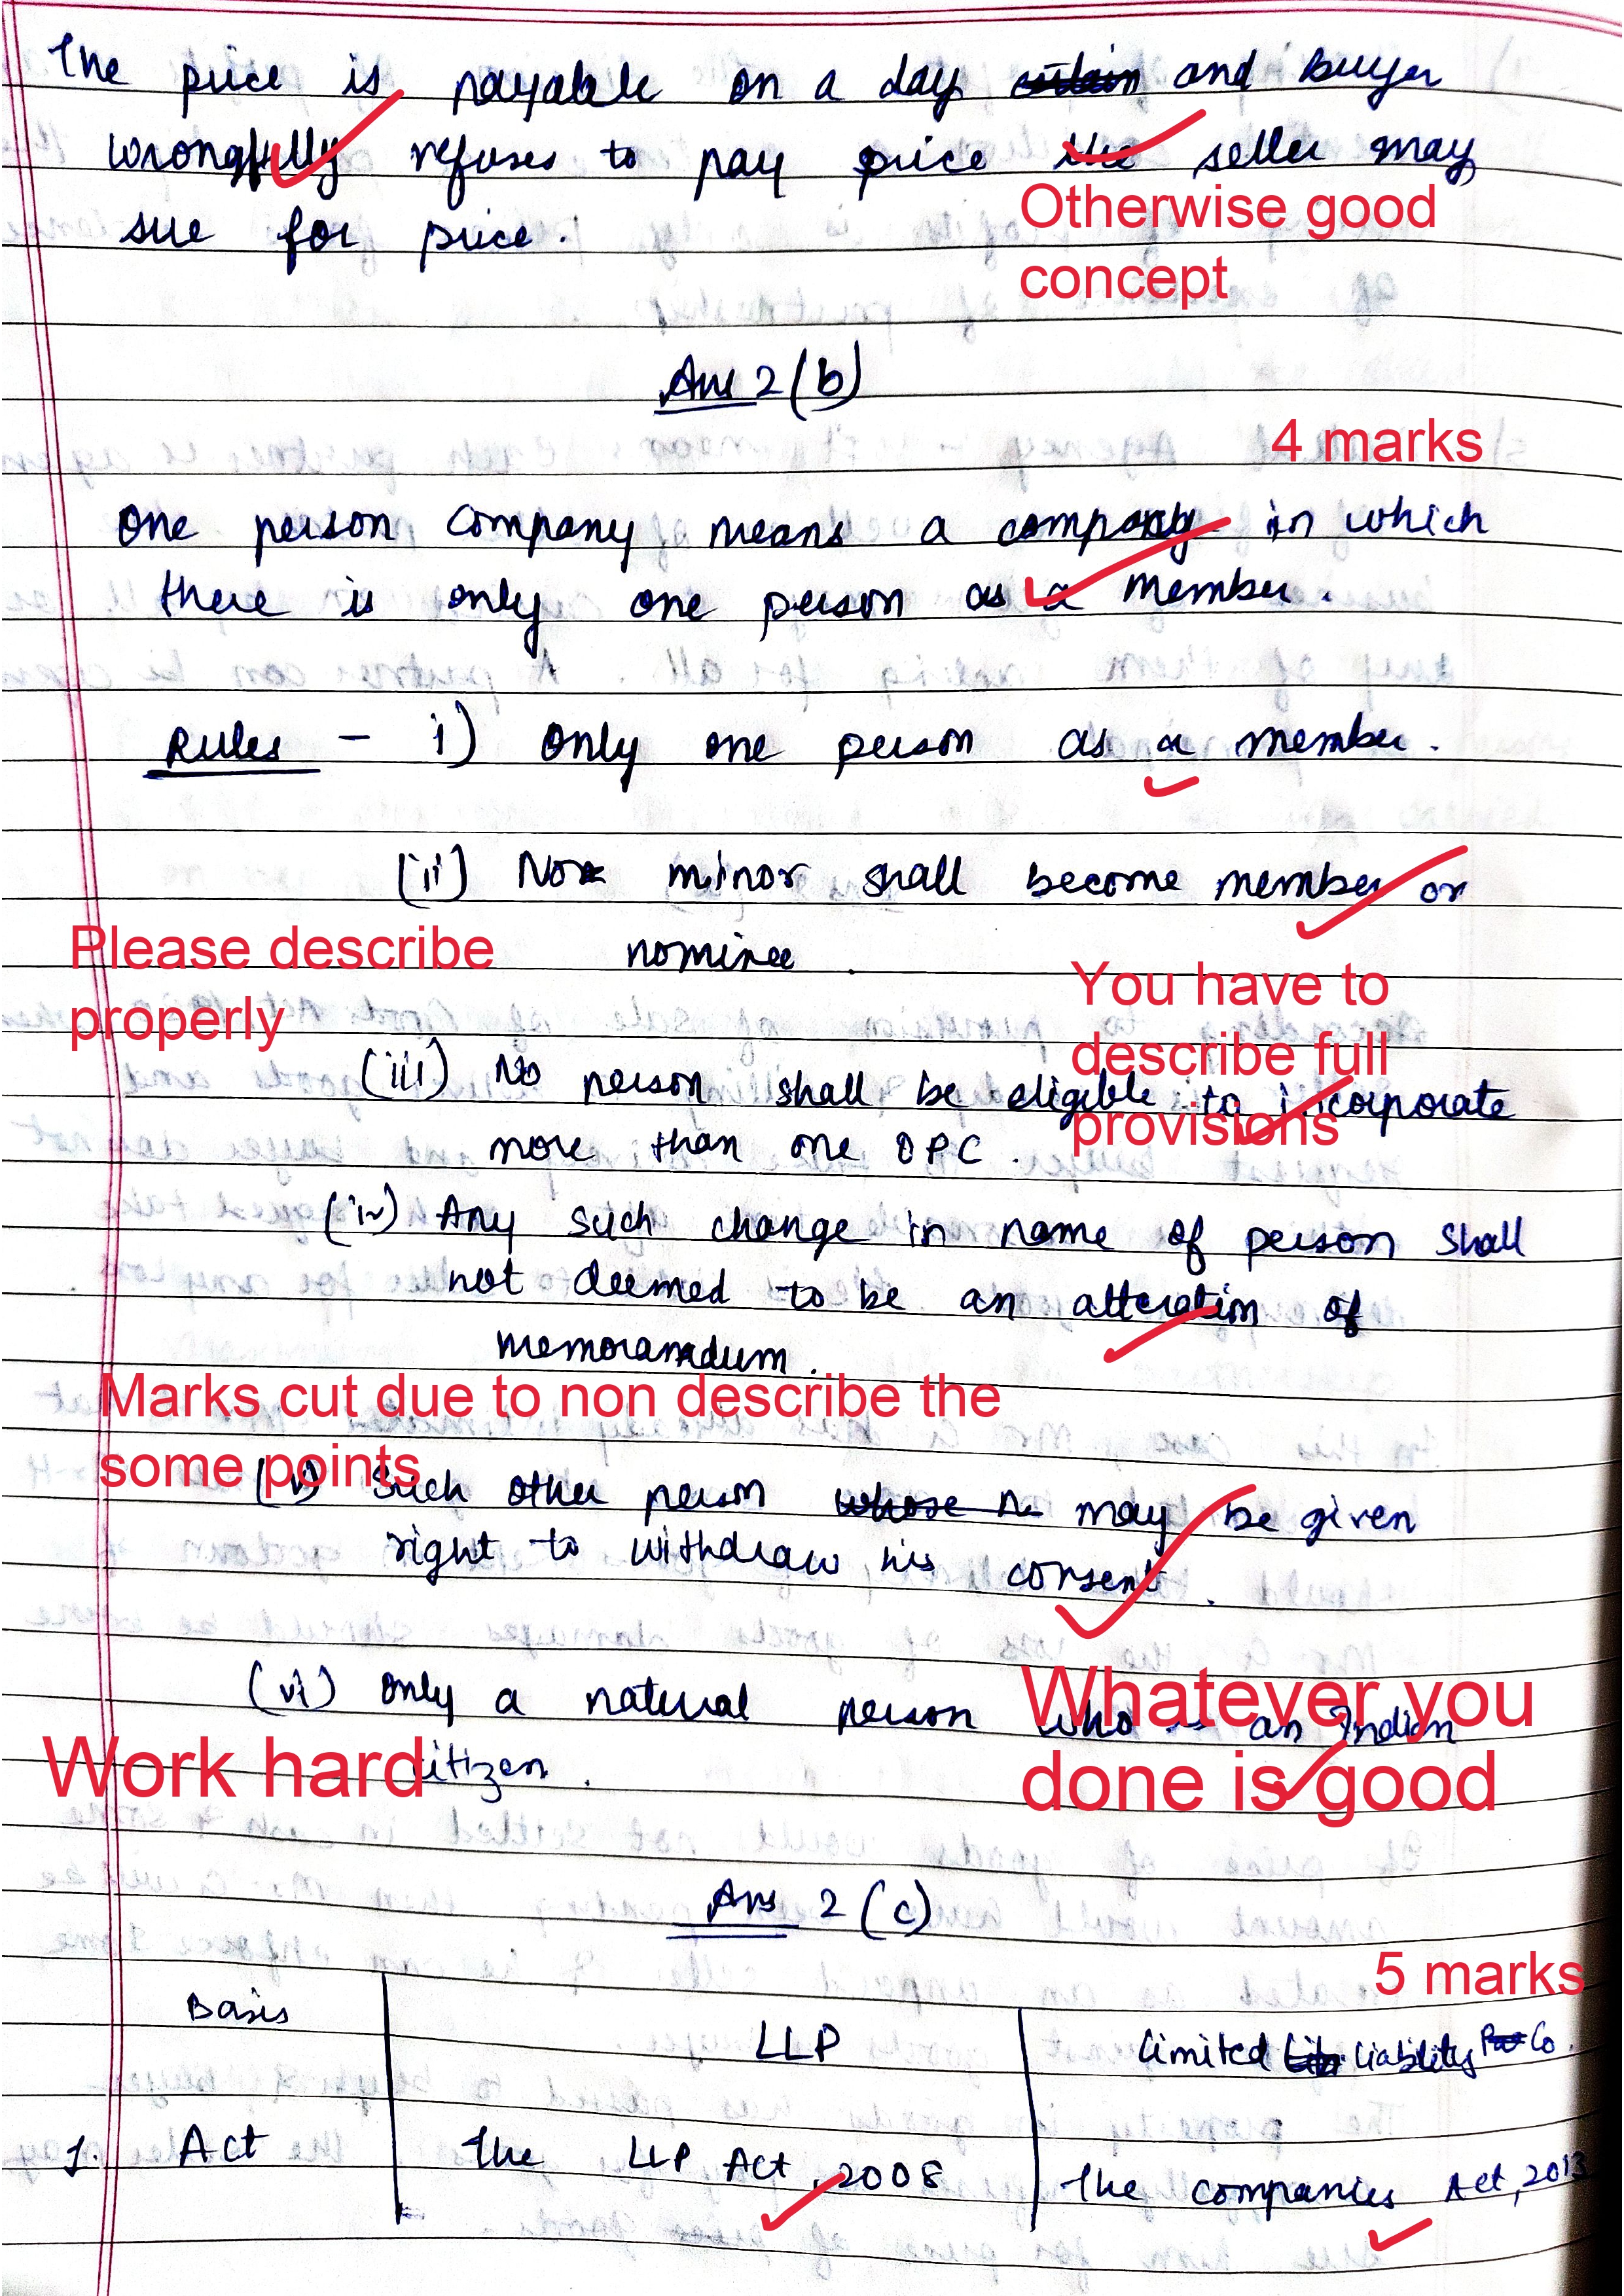 The price is payable on a day and buyer
wrongfully refuses to pay price the seller may
sue for price.
Otherwise good
concept
Ans 2 (b)
4 marks
One person company means a company in which
there is only one person as a member.
Rules - i) Only one person as a member.
(ii) No minor shall become member or
nominee.
Please describe
properly
You have to
describe full
provisions
(iii) No person shall be eligible to incorporate
more than one OPC.
(iv) Any such change in name of person shall
not deemed to be an alteration of
memorandum.
Marks cut due to non describe the
some points
(v) Such other person may be given
right to withdraw his consent.
(vi) Only a natural person who is an Indian
citizen.
Whatever you
done is good
Work hard
Ans 2 (c)
5 marks
Basis LLP Limited Liability Co.
1. Act The LLP Act, 2008 The Companies Act, 2013